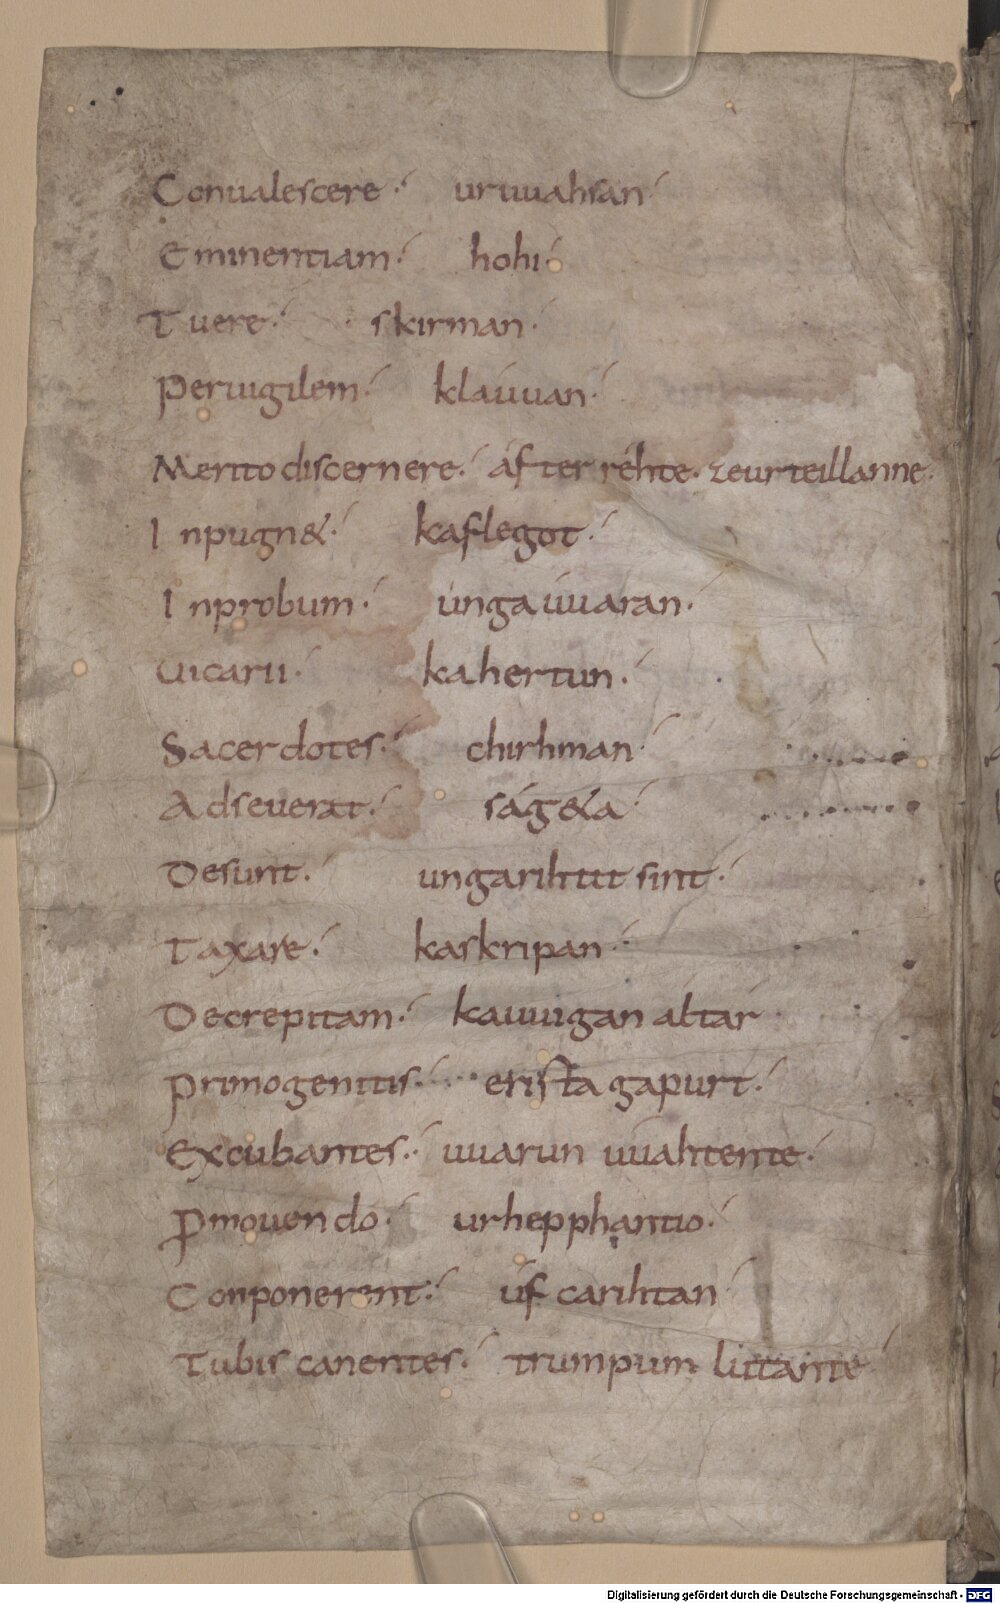 Conualescere ·⁄ uruuahsan ·⁄
Eminentiam ·⁄ hohi ·⁄
Tuere ·⁄ skirman ·
Peruigilem ·⁄ kláuuan ·⁄
Merito discernere ·⁄ áfter réhte · zeurteillanne ·
Inpugn& ·⁄ kaflegot ·⁄
Inprobum ·⁄ úngauuaran ·⁄
Uicarii ·⁄ kahertun ·⁄
Sacerdotes ·⁄ chirhman ·⁄
Adseuerat ·⁄ ság&a ·⁄
Desunt ·⁄ ungarihtit sint ·⁄
Taxare ·⁄ kaskripan ·⁄
Decrepitam ·⁄ kauuigan altár
Primogenitis ·⁄ erista gapurt ·⁄
Excubantes ·⁄ uuarun uuahtente ·⁄
Ꝓmouendo ·⁄ urhepphantio ·⁄
Conponerent ·⁄ úf carihtan ·⁄
Tubis canentes ·⁄ trumpum liutante ·⁄
Digitalisierung gefördert durch die Deutsche Forschungsgemeinschaft - DFG